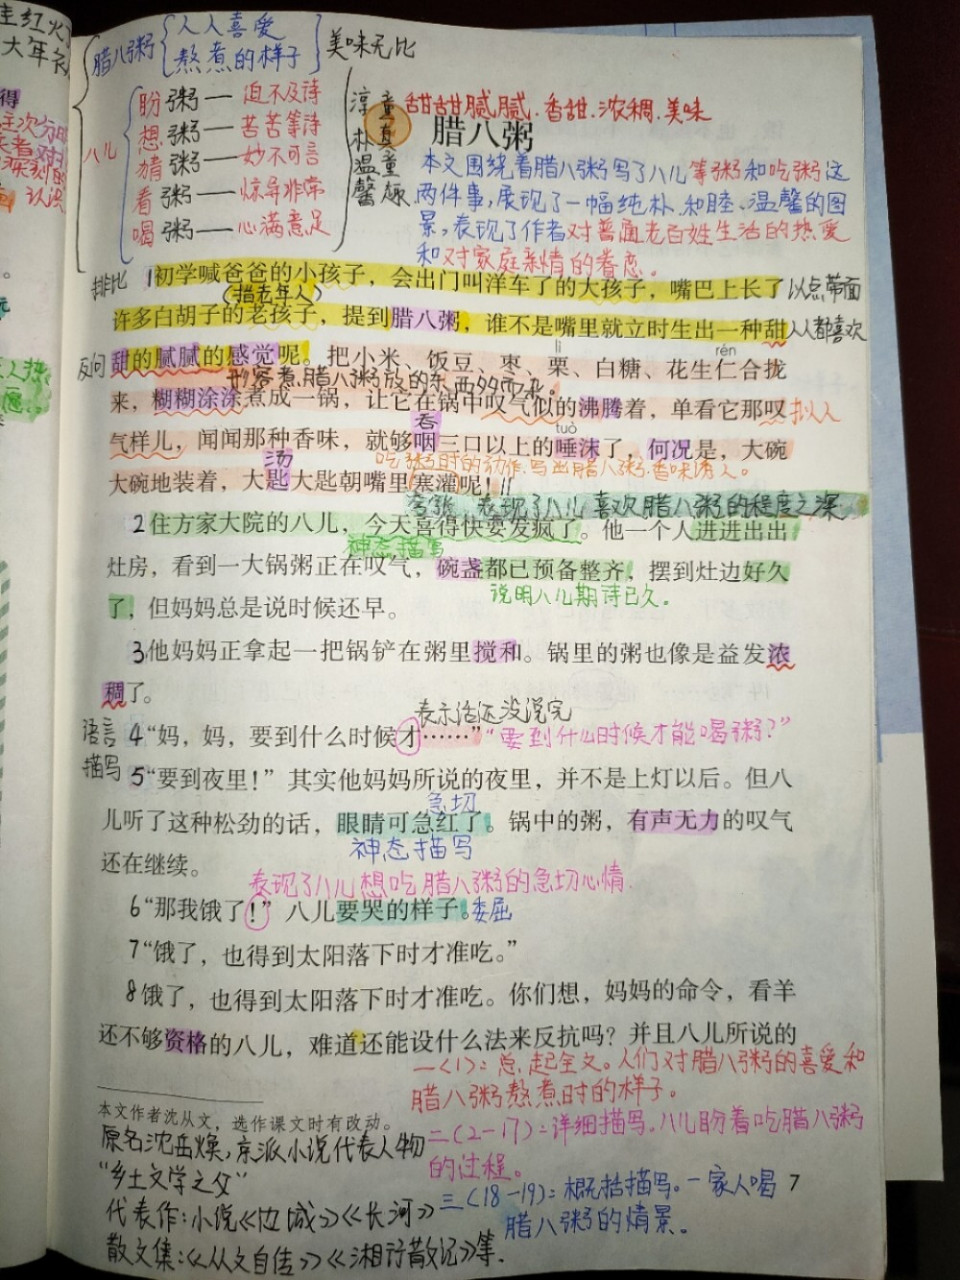 腊八粥
人人喜爱
熬煮的样子
美味无比
八儿
盼粥——迫不及待
想粥——苦苦等待
猜粥——妙不可言
看粥——惊异非常
喝粥——心满意足
淳朴温馨
童真童趣
甜甜腻腻.香甜.浓稠.美味
腊八粥
本文围绕着腊八粥写了八儿等粥和吃粥这
两件事,展现了一幅纯朴、和睦、温馨的图
景,表现了作者对普通老百姓生活的热爱
和对家庭亲情的眷恋。
排比
1初学喊爸爸的小孩子，会出门叫洋车了的大孩子，嘴巴上长了
以点带面
(指老年人)
许多白胡子的老孩子，提到腊八粥，谁不是嘴里就立时生出一种甜
人人都喜欢
反问
lì
rén
甜的腻腻的感觉呢。把小米、饭豆、枣、栗、白糖、花生仁合拢
形容煮腊八粥放的东西多而杂。
来，糊糊涂涂煮成一锅，让它在锅中叹气似的沸腾着，单看它那叹
拟人
吞
tuò
气样儿，闻闻那种香味，就够咽三口以上的唾沫了，何况是，大碗
汤
吃粥时的动作.写出腊八粥香味诱人。
大碗地装着，大匙大匙朝嘴里塞灌呢！//
夸张 表现了八儿喜欢腊八粥的程度之深
2住方家大院的八儿，今天喜得快要发疯了。他一个人进进出出
神态描写
灶房，看到一大锅粥正在叹气，碗盏都已预备整齐，摆到灶边好久
说明八儿期待已久。
了，但妈妈总是说时候还早。
3他妈妈正拿起一把锅铲在粥里搅和。锅里的粥也像是益发浓
稠了。
表示话还没说完
语言
描写
4“妈，妈，要到什么时候才……”
“要到什么时候才能喝粥?”
5“要到夜里！”其实他妈妈所说的夜里，并不是上灯以后。但八
急切
儿听了这种松劲的话，眼睛可急红了。锅中的粥，有声无力的叹气
神态描写
还在继续。
表现了八儿想吃腊八粥的急切心情.
6“那我饿了！”八儿要哭的样子。
委屈
7“饿了，也得到太阳落下时才准吃。”
8饿了，也得到太阳落下时才准吃。你们想，妈妈的命令，看羊
还不够资格的八儿，难道还能设什么法来反抗吗？并且八儿所说的
一(1):总.起全文.人们对腊八粥的喜爱和
腊八粥熬煮时的样子。
二(2-17):详细描写.八儿盼着吃腊八粥
的过程。
三(18-19):概括描写.一家人喝
腊八粥的情景。
7
本文作者沈从文，选作课文时有改动。
原名沈岳焕,京派小说代表人物
“乡土文学之父”
代表作:小说《边城》《长河》
散文集:《从文自传》《湘行散记》等.